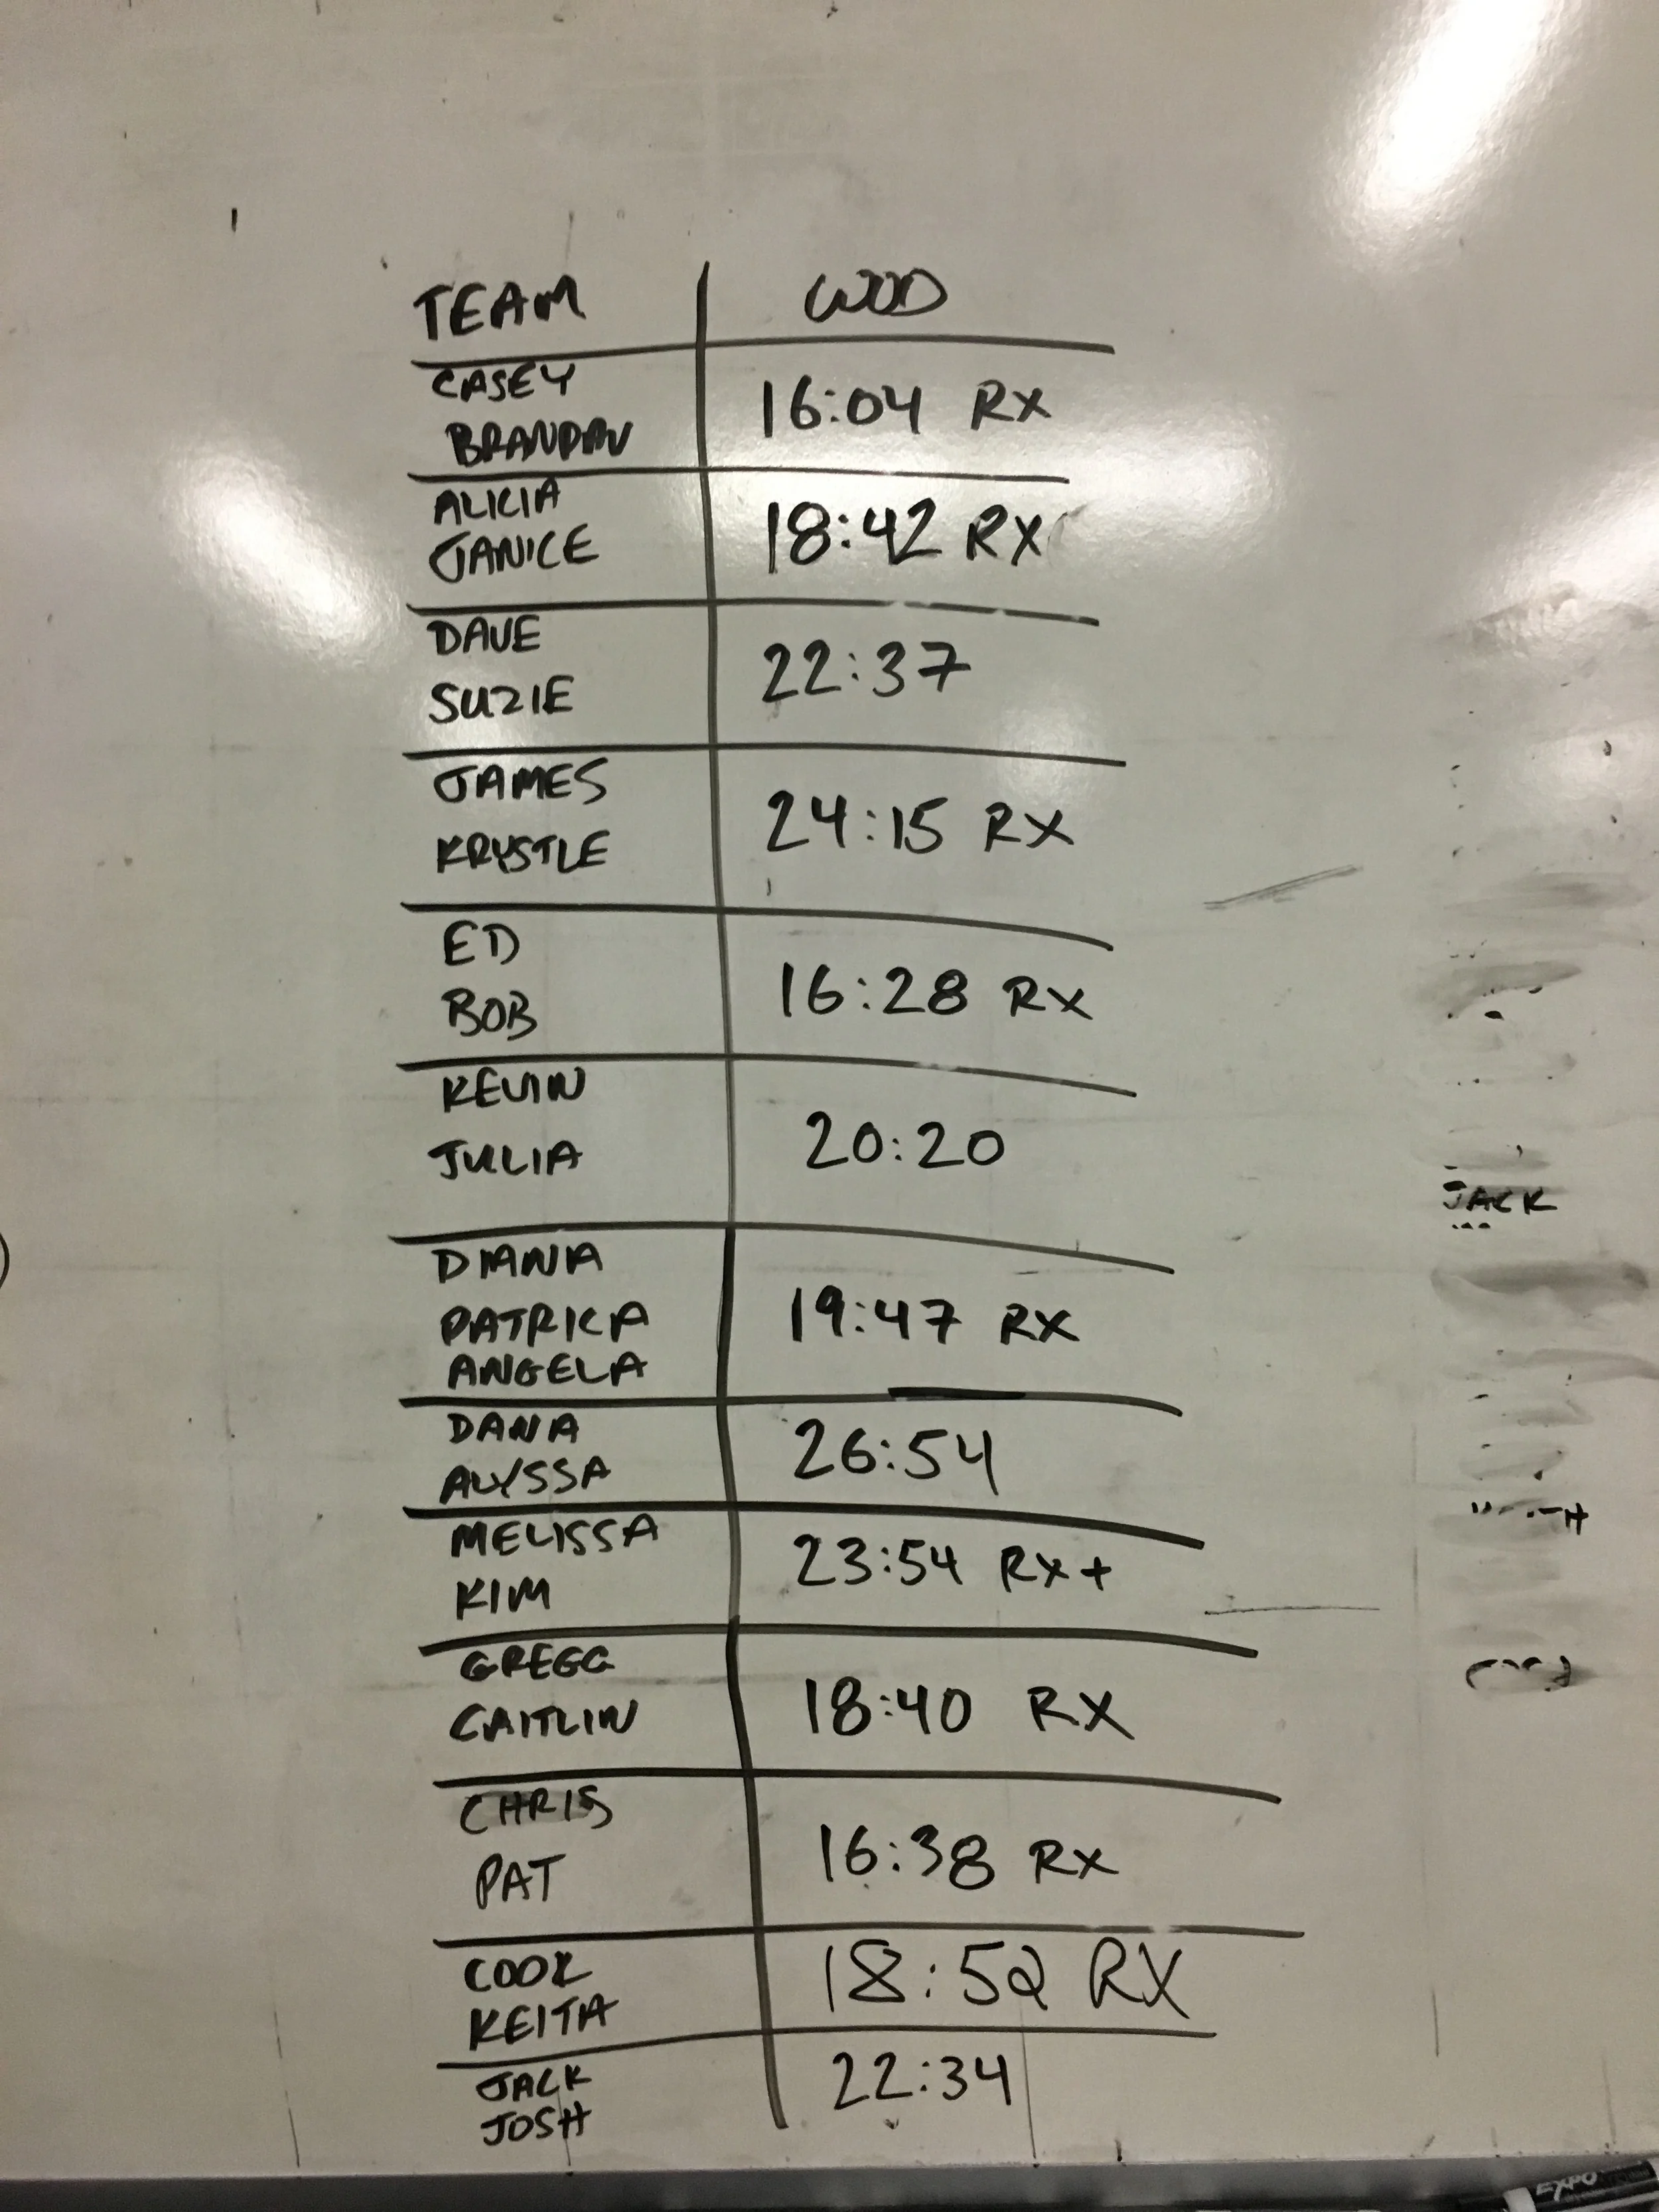 TEAM WOD
CASEY
BRANDAN
16:04 RX
ALICIA
JANICE
18:42 RX
DAVE
SUZIE
22:37
JAMES
KRYSTLE
24:15 RX
ED
BOB
16:28 RX
KEVIN
JULIA
20:20
DIANA
PATRICA
ANGELA
19:47 RX
DANA
ALYSSA
26:54
MELISSA
KIM
23:54 RX+
GREGG
CAITLIN
18:40 RX
CHRIS
PAT
16:38 RX
COOK
KEITH
18:52 RX
JACK
JOSH
22:34
JACK
EXPO